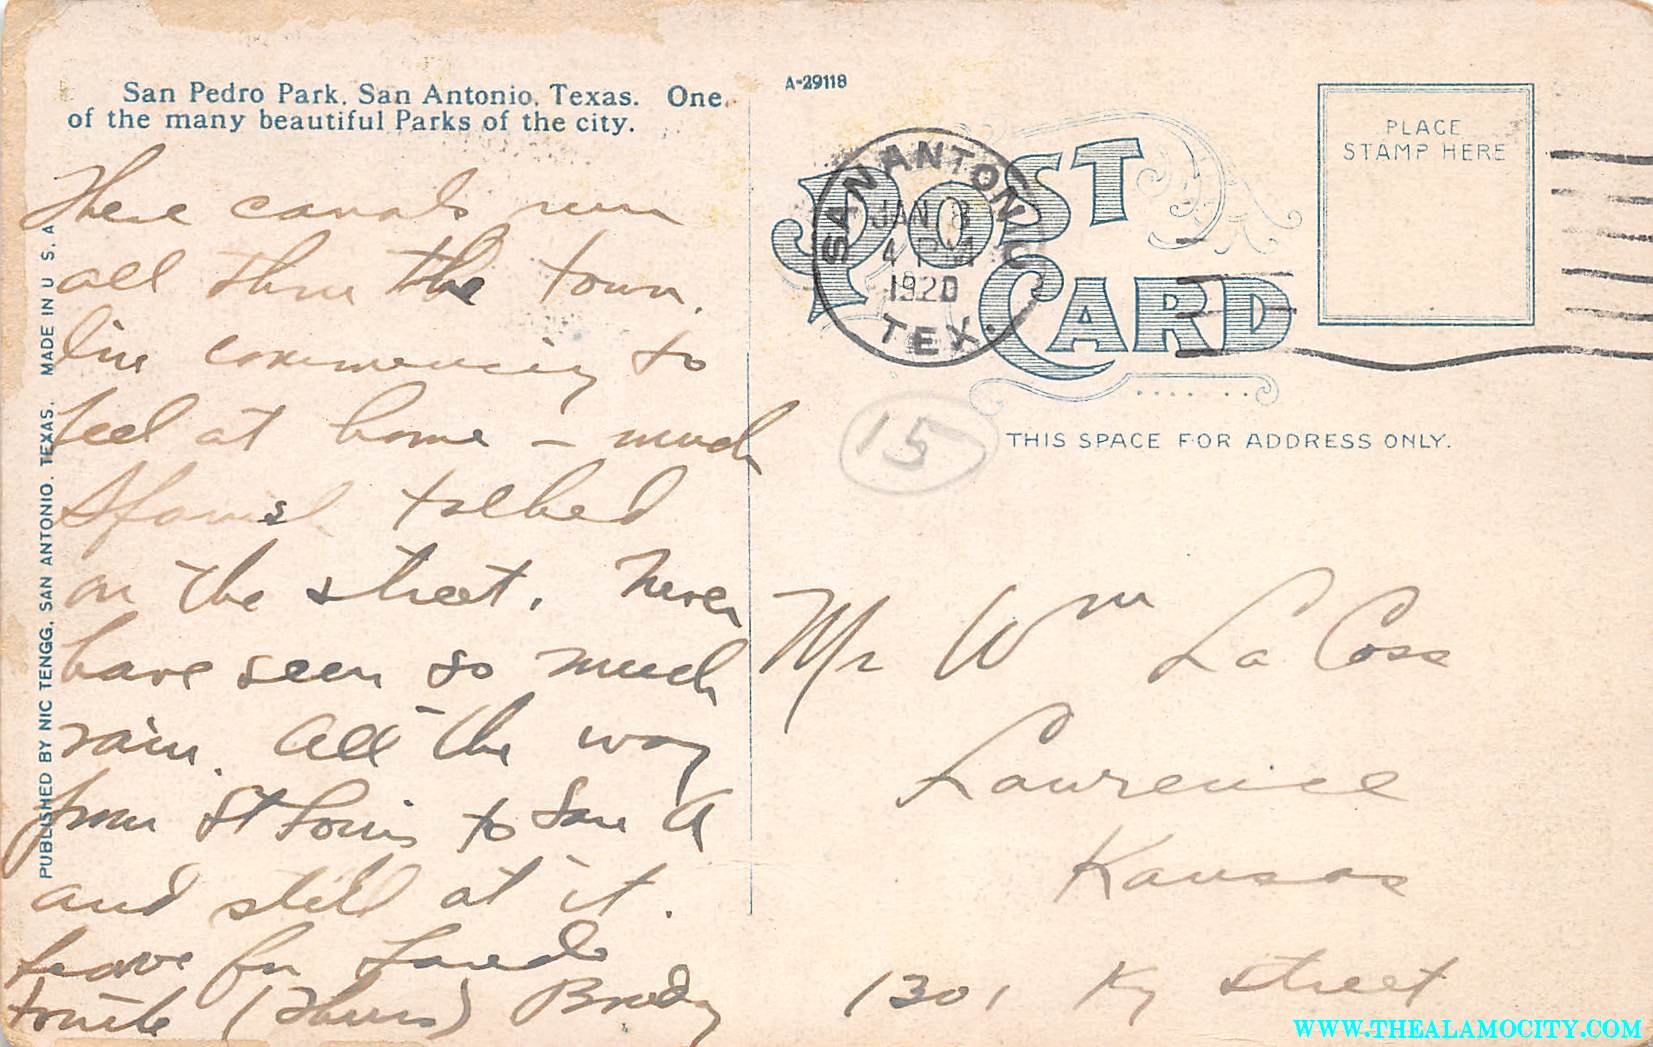 San Pedro Park, San Antonio, Texas. One
of the many beautiful Parks of the city.
These canals run
all thru the town.
I'm commencing to
feel at home — much
Spanish talked
on the street. Never
have seen so much
rain. All the way
from St Louis to San A
and still at it.
Leave for Laredo
tonite (Thurs) Brody
PUBLISHED BY NIC TENGG, SAN ANTONIO, TEXAS. MADE IN U S. A
A-29118
POST
CARD
SAN ANTONIO
JAN 8
4 PM
1920
TEX.
PLACE
STAMP HERE
15
THIS SPACE FOR ADDRESS ONLY.
Mr Wm La Coss
Lawrence
Kansas
1301 Ky street
WWW.THEALAMOCITY.COM